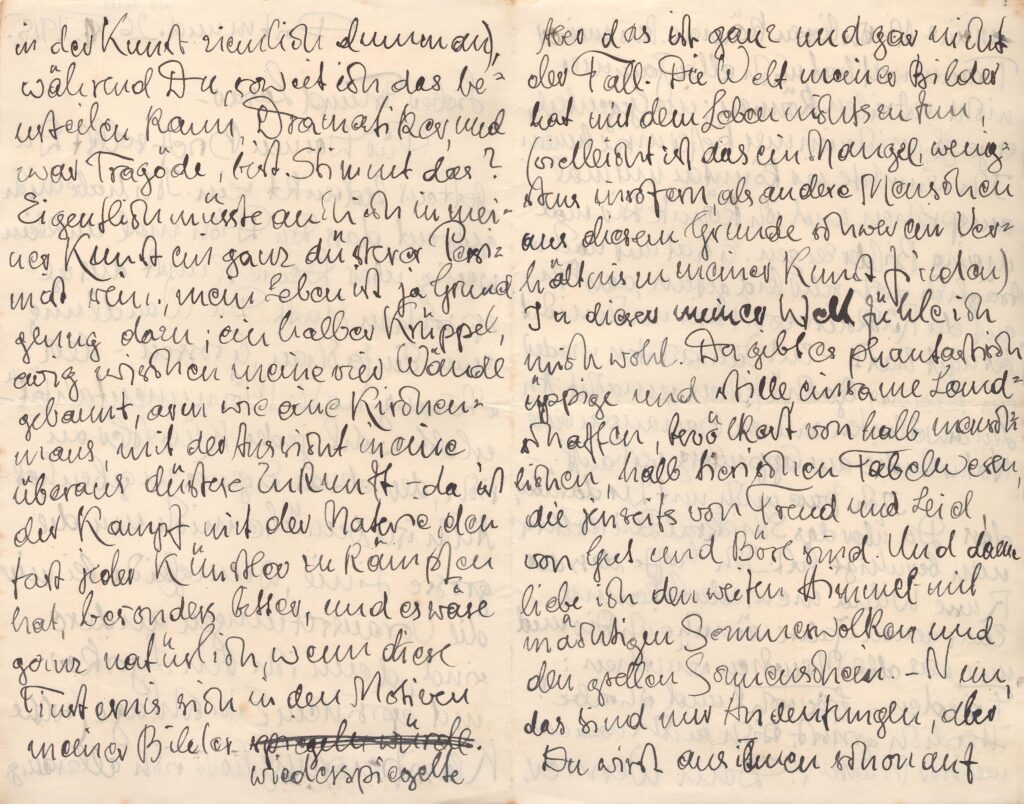 in der Kunst ziemlich dumm an),
während Du, soweit ich das be-
urteilen kann, Dramatiker, und
zwar Tragöde, bist. Stimmt das?
Eigentlich müsste auch ich in mei-
ner Kunst ein ganz düsterer Pessi-
mist sein., mein Leben ist ja Grund
genug dazu; ein halber Krüppel,
ewig zwischen meine vier Wände
gebannt, arm wie eine Kirchen-
maus, mit der Aussicht in eine
überaus düstere Zukunft – da ist
der Kampf mit der Materie, den
fast jeder Künstler zu kämpfen
hat, besonders bitter, und es wäre
ganz natürlich, wenn diese
Finsternis sich in den Motiven
meiner Bilder spiegeln würde.
wiederspiegelte
Aber das ist ganz und gar nicht
der Fall. Die Welt meiner Bilder
hat mit dem Leben nichts zu tun,
(vielleicht ist das ein Mangel, wenig-
stens insofern, als andere Menschen
aus diesem Grunde schwer ein Ver-
hältnis zu meiner Kunst finden)
In dieser meiner Welt fühle ich
mich wohl. Da gibt es phantastisch
üppige und stille einsame Land-
schaften, bevölkert von halb mensch-
lichen, halb tierischen Fabelwesen,
die jenseits von Freud und Leid,
von Gut und Böse sind. Und dann
liebe ich den weiten Himmel mit
mächtigen Sommerwolken und
den grellen Sonnenschein. – Nun,
das sind nur Andeutungen, aber
Du wirst aus ihnen schon auf